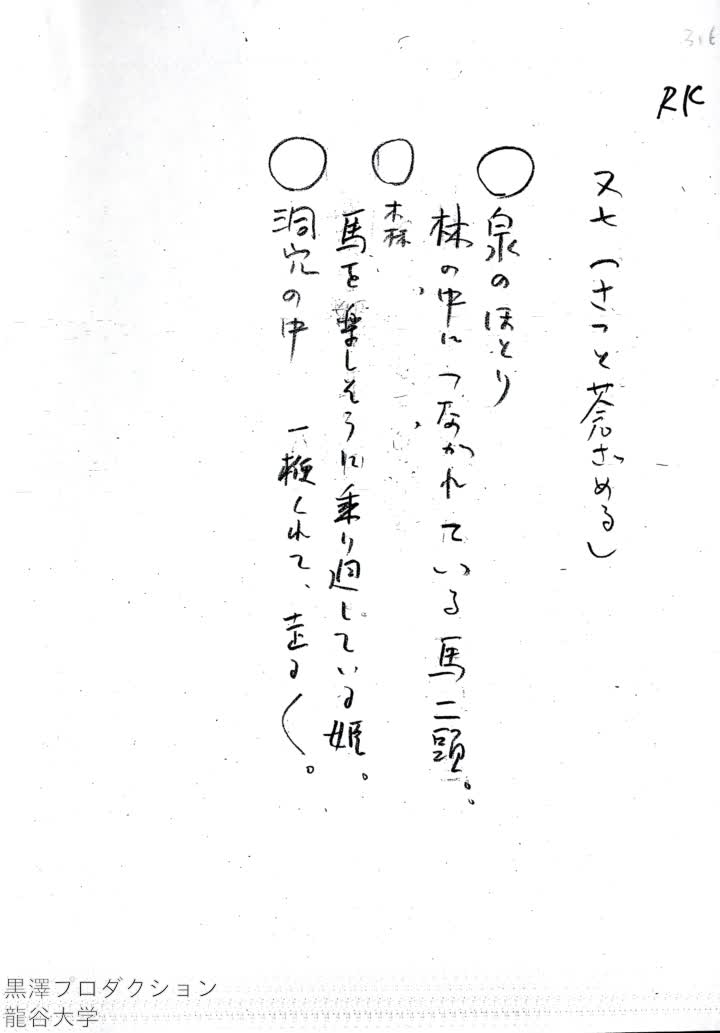 RK
又七「さっと蒼ざめる」
○泉のほとり
林の中につながれている馬二頭。
○森
馬を楽しそうに乗り廻している姫。
○洞穴の中
てれて、走る〱。
黒澤プロダクション
龍谷大学